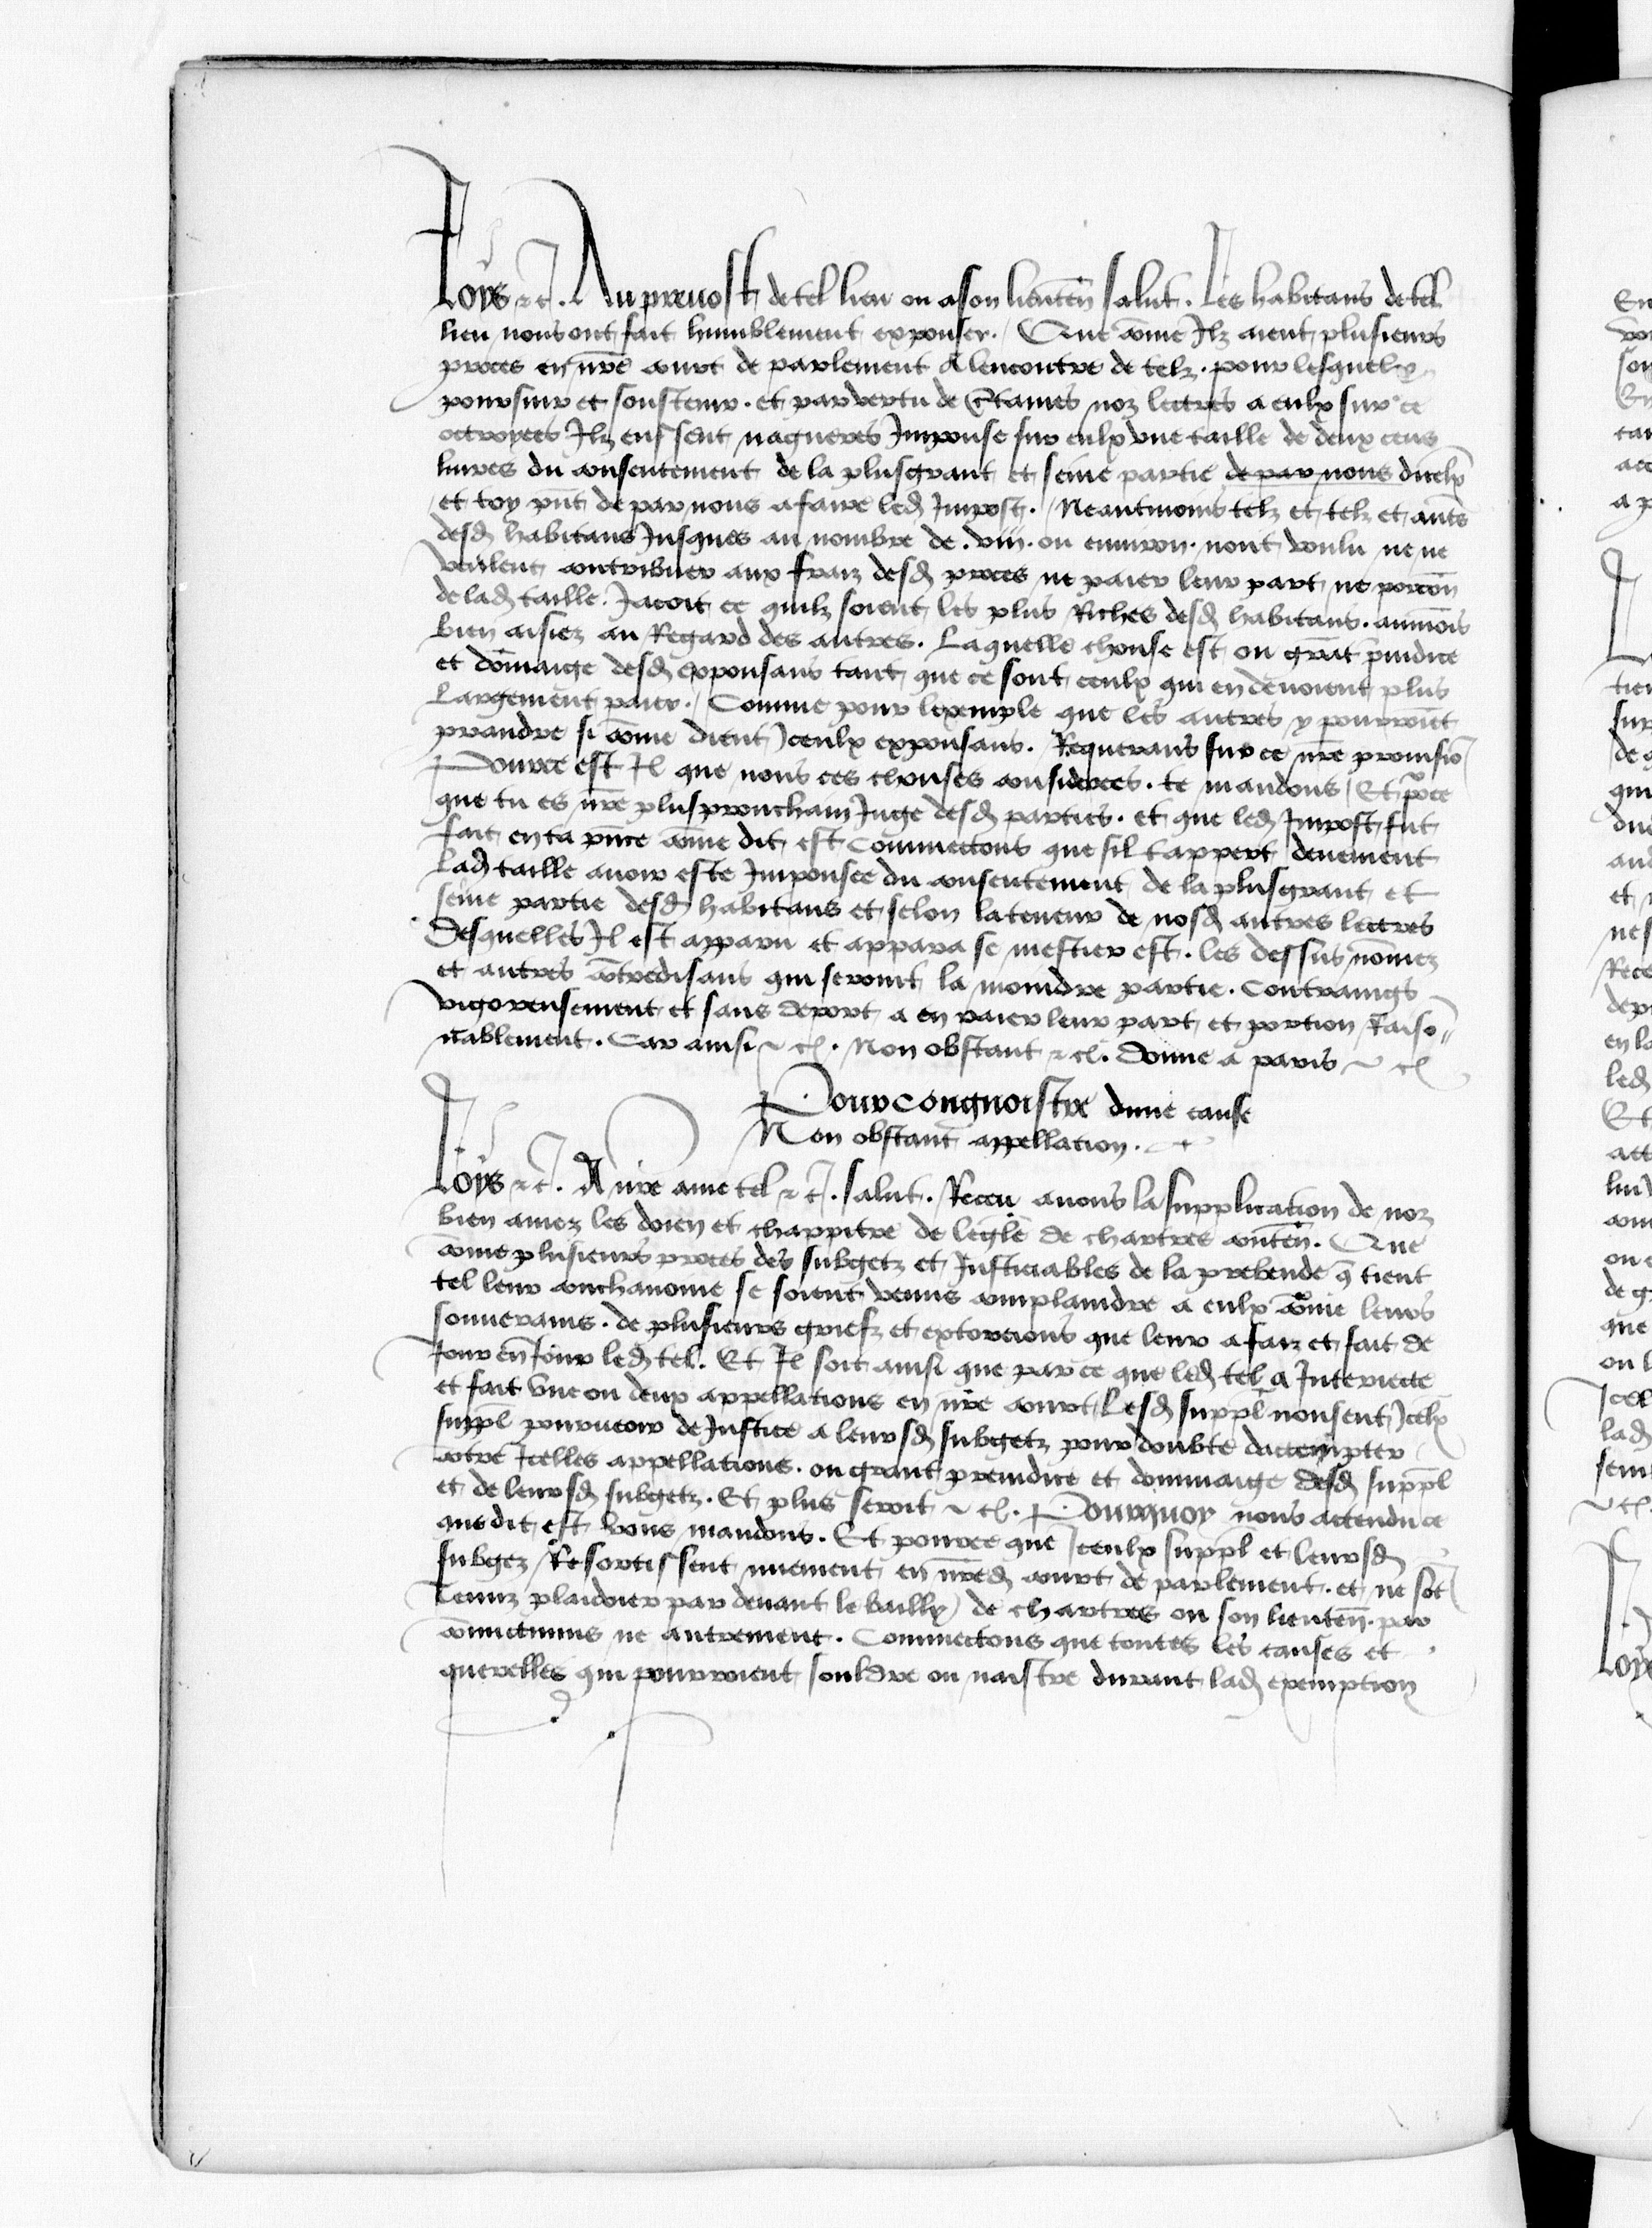 Loys &c̃. Au prevost de tel lieu ou a son lieuteñ salut. Les habitans de tel
lieu nous ont fait humblement exposer. Que cõme Ilz aient plusieurs
proces en nr̃e court de parlement A lencontre de telz. pour lesquelx
poursuir et soustenir. et par vertu de c̃taines noz lectres a eulx sur ce
octroyees Ilz eussent nagueres Imponse sur eulx une taille de deux cens
livres du consentement de la plusgrant et seine partie de par nous dicelx
et toy pñt de par nous a faire led̃ Impost. Neantmoins telz et telz et autẽs
desd̃ habitans Jusques au nombre de .viii. ou environ. nont voulu ne ne
veulent contribuer aux fraiz desd̃ proces ne paier leur part ne porcõn
de lad̃ taille. Jacoit ce quilz soient les plus Riches desd̃ habitans. aumoĩs
bien aisiez au Regard des autres. Laquelle chouse est ou grãt p̃iudice
et dõmaige desd̃ exponsans tant que ce sont ceulx qui en devoient plus
Largement paier. Comme pour lexemple que les autres y pourroiẽt
prandre si cõme dient Iceulx exponsans. Requerans sur ce nr̃e provisiõ
Pource est Il que nous ces chouses considerees. te mandons Et pource
que tu es nr̃e plusprouchain Juge desd̃ parties. et que led̃ Impost fut
fait en ta pñce cõme dit est Commectons que sil tappert deuement
Lad̃ taille avoir este Imponsee du consentement de la plusgrant et
seine partie desd̃ habitans et selon la teneur de nosd̃ autres lectres
Desquelles Il est apparu et appara se mestier est. les dessus nõmez
et autres cõtredisans qui seront la moindre partie. Contraings
vigoreusement et sans deport a en paier leur part et portion Raiso⹀
ñablement. Car ainsi &c̃. Non obstant &c̃. donne a paris &c̃
Pour congnoistre dune cause
Non obstant appellacion.
Loys &c̃. A nr̃e ame tel &c̃. salut. Receu avons la supplication de noz
bien amez les doien et chappitre de leglĩe de chartres conteñ. Que
cõme plusieurs proces des subgetz et Justiciables de la prebende q̃ tient
tel leur conchanoine se soient venus complaindre a eulx cõme leurs
souverains. de plusieurs griefz et extorcions que leur a faiz et fait de
Jour en Jour led̃ tel. Et Il soit ainsi que parce que led̃ tel a Interiecte
et fait une ou deux appellations en nr̃e court. Lesd̃ suppl̃ nousent Icelx
suppl̃ pourveoir de Justice a leursd̃ subgetz pour doubte dactempter
cõtre Icelles appellations. ou grant preiudice et dommaige desd̃ suppl̃
et de leursd̃ subgetz. Et plus seroit &c̃. Pourquoy nous actendu ce
que dit est vous mandons. Et pource que Iceulx suppl̃ et leursd̃
subgez Resortissent nuement en nr̃ed̃ court de parlement. et ne sõt
Tenuz plaidoier par devant le bailly de chartres ou son lieuteñ. par
commictimus ne autrement. Commectons que toutes les causes et
querelles qui pourroient souldre ou naistre durant lad̃ exemption